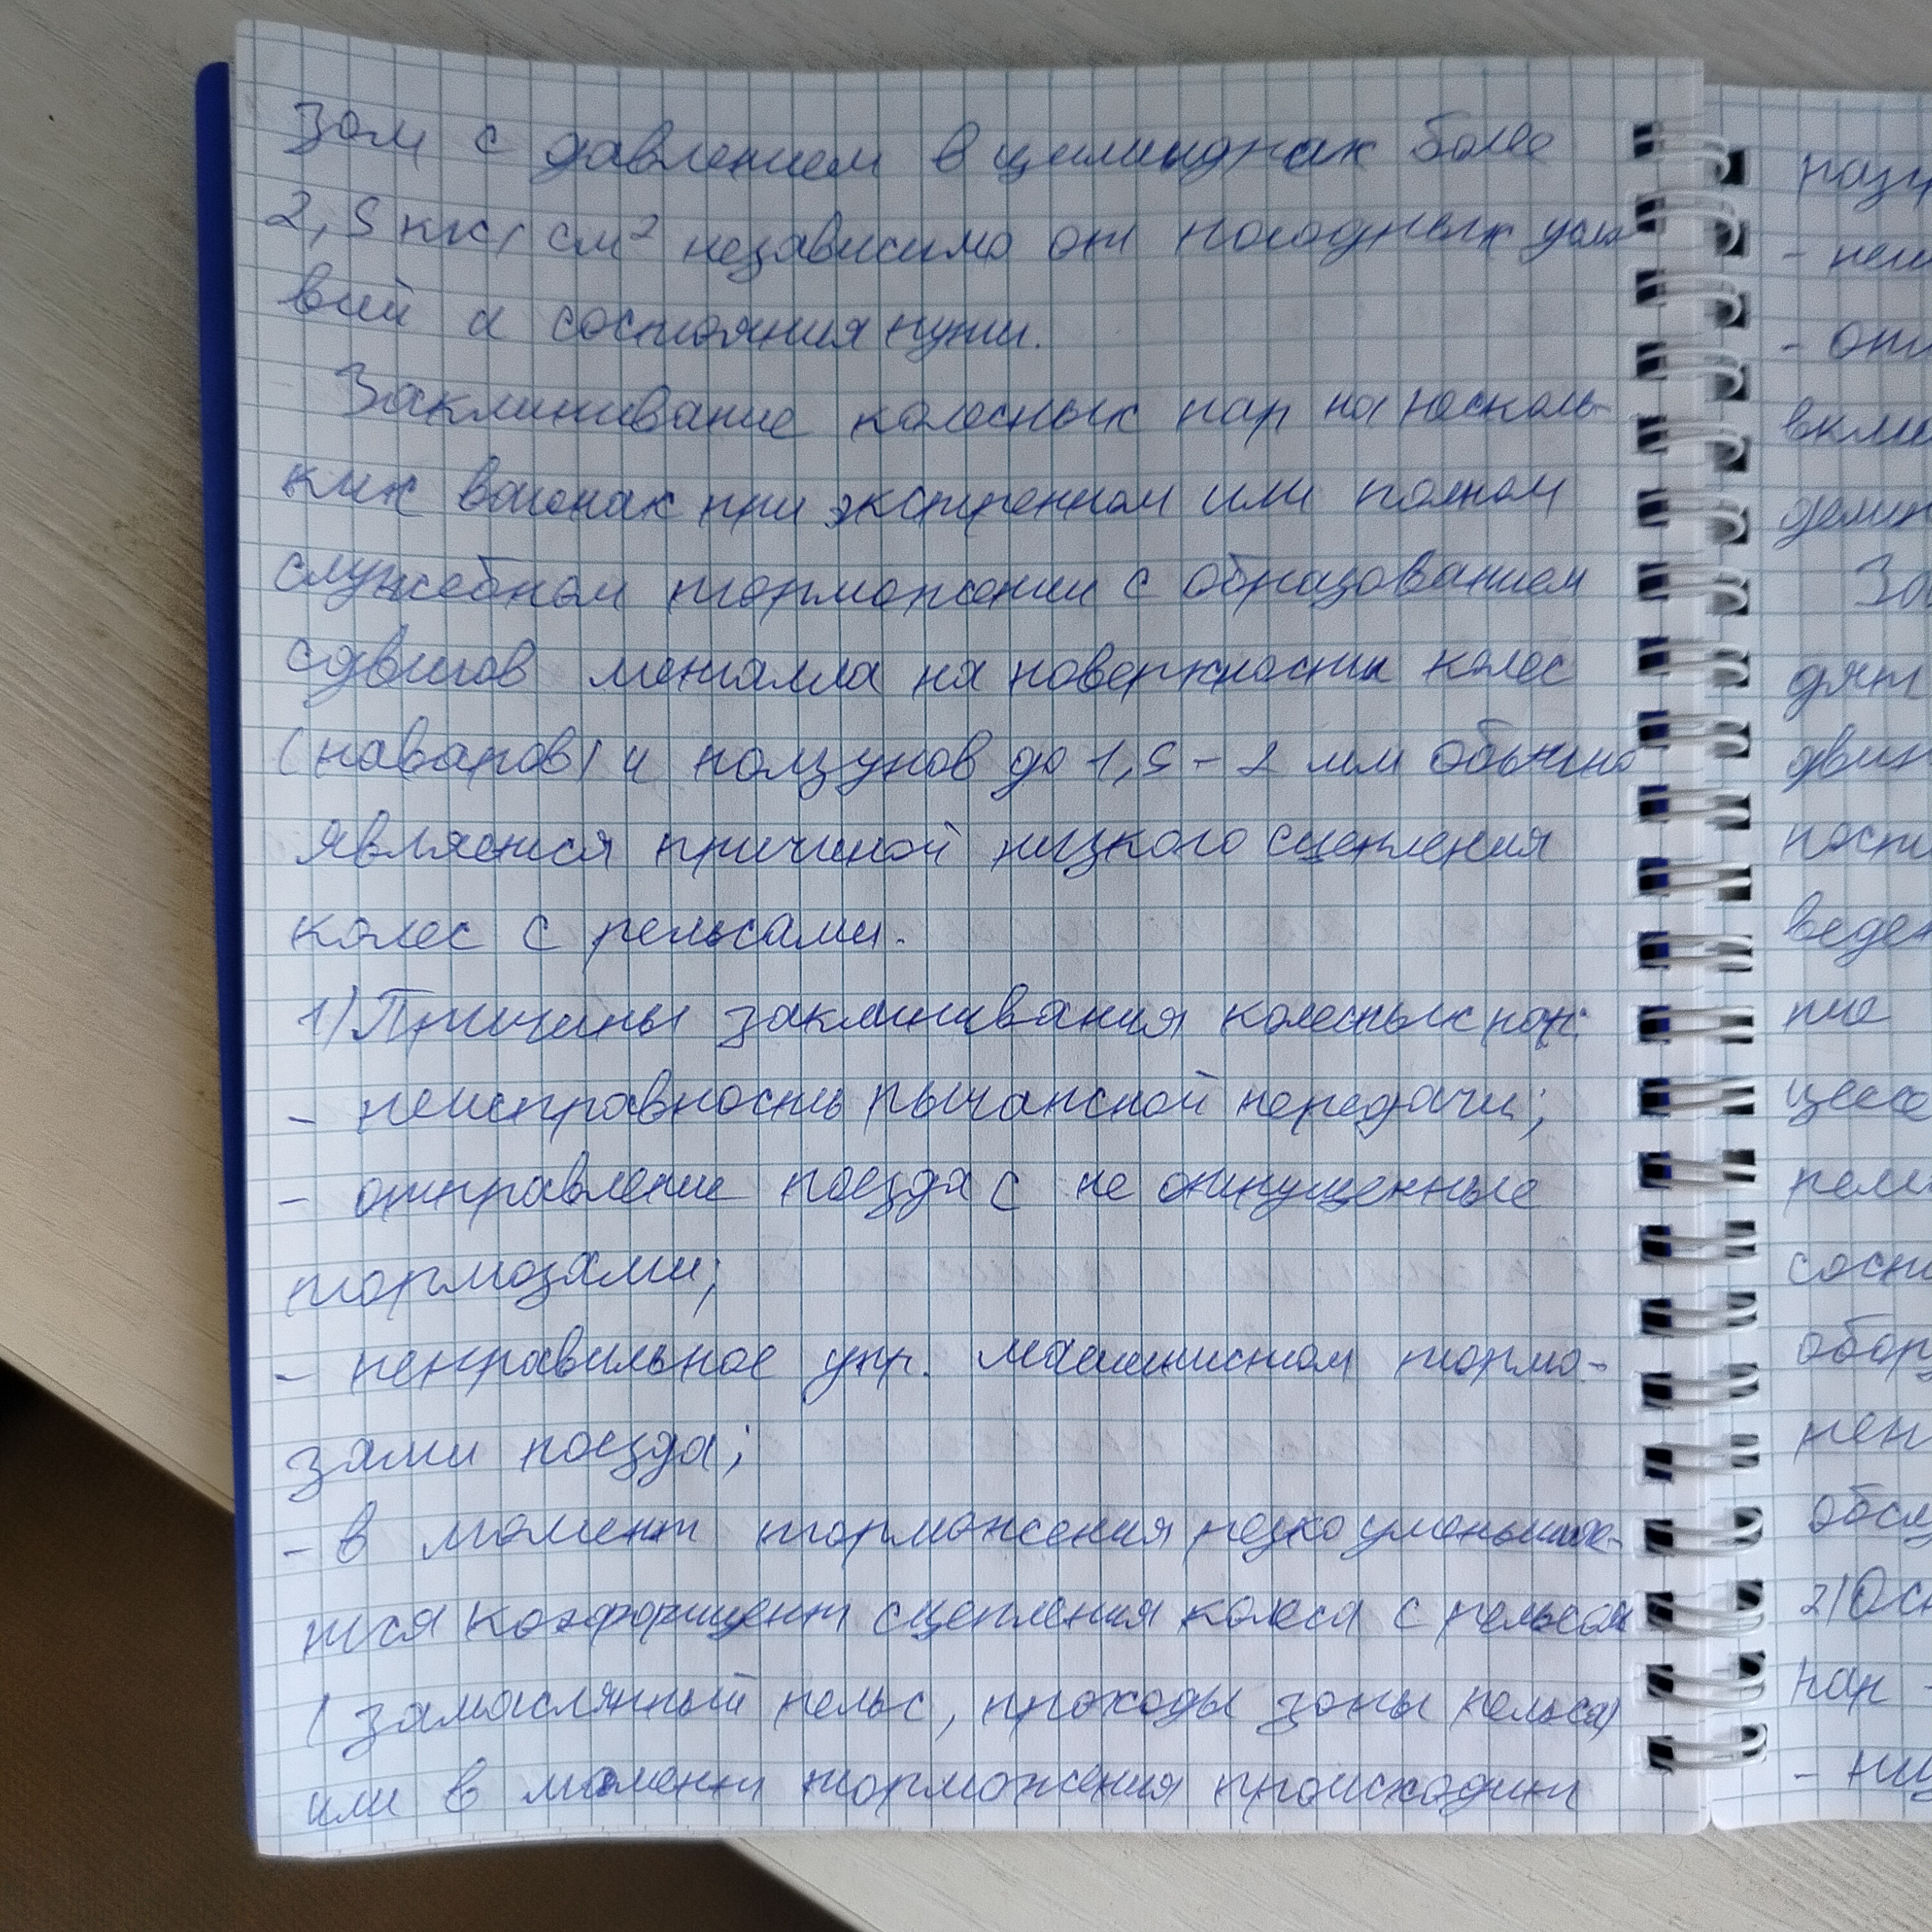 зом с давлением в цилиндрах более
2,5 кгс/см² независимо от погодных усло
вий и состояния пути.
Заклинивание колесных пар на несколь-
ких вагонах при экстренном или полном
служебном торможении с образованием
сдвигов металла на поверхности колес
(наваров) и ползунов до 1,5 - 2 мм обычно
является причиной низкого сцепления
колес с рельсами.
1) Причины заклинивания колесных пар:
- неисправность рычажной передачи;
- отправление поезда с не отпущенные
тормозами;
- неправильное упр. машинистом тормо-
зами поезда;
- в момент торможения резко уменьшае-
тся коэффициент сцепления колеса с рельсом
(замаслянный рельс, проходы зоны рельса)
или в момент торможения происходит
- от
вклю
За
дят
веде
ние
сост
обор
обсл
2) Осн
пар -